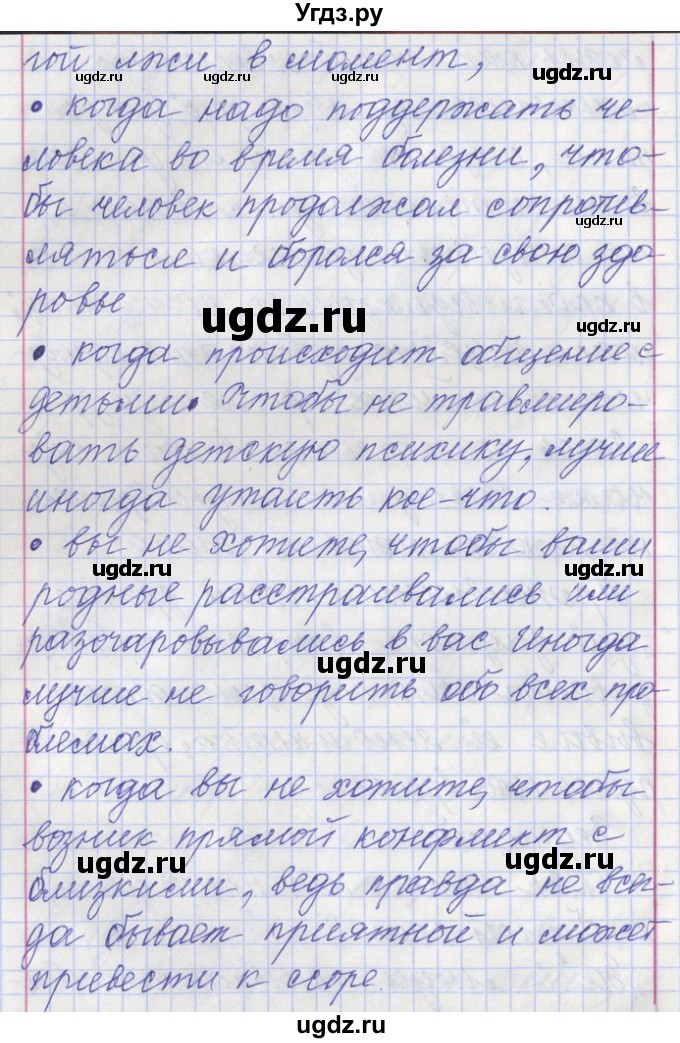 Угдз.ру
гой лжи в момент,
• когда надо поддержать че-
ловека во время болезни, что-
бы человек продолжал сопротив-
ляться и боролся за свою здо
ровье
• когда происходит общение с
детьми. Чтобы не травмиро-
вать детскую психику, лучше
иногда утаить кое-что.
• вы не хотите, чтобы ваши
родные расстраивались или
разочаровывались в вас Иногда
лучше не говорить обо всех про-
блемах.
• когда вы не хотите, чтобы
возник прямой конфликт с
близкими, ведь правда не всег-
да бывает приятной и может
привести к ссоре.
ugdz.ru
ugdz.ru
ugdz.ru
ugdz.ru
ugdz.ru
ugdz.ru
ugdz.ru
ugdz.ru
ugdz.ru
ugdz.ru
ugdz.ru
ugdz.ru
ugdz.ru
ugdz.ru